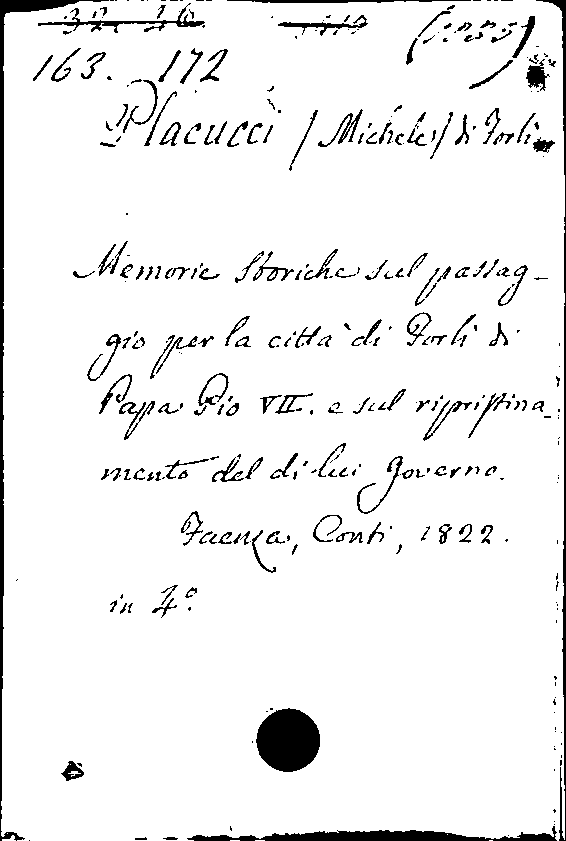 163. 172
Placucci (Michele) di Forlì
Memorie Storiche sul passag-
gio per la città di Forlì di
Papa Pio VII. e sul ripristina-
mento del di lui Governo.
Faenza, Conti, 1822.
in 4º.